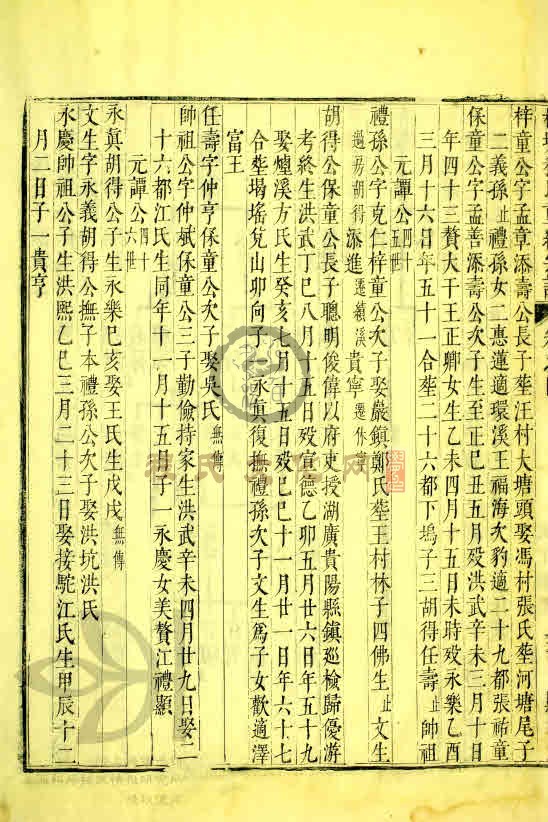 梓童公字孟章添壽公長子塟汪村大塘頭娶馮村張氏塟河塘尾子
二義孫止禮孫女二惠蓮適環溪王福海次豹適二十九都張祐童
保童公字孟善添壽公次子生至正巳丑五月殁洪武辛未三月十日
年四十三贅大干王正卿女生乙未四月十五日未時殁永樂乙酉
三月十六日年五十一合塟二十六都下塢子三胡得任壽止帥祖
元譚公四十五世
禮孫公字克仁梓童公次子娶嚴鎮鄭氏塟王村林子四佛生止文生
過房胡得添進遷績溪貴寧遷休寧
胡得公保童公長子聰明俊偉以府吏授湖廣貴陽縣鎮廵檢歸優游
考終生洪武丁巳八月十五日殁宣德乙卯五月廿六日年五十九
娶煙溪方氏生癸亥七月十五日殁巳巳十一月廿一日年六十七
合塟塌堨兌山卯向子一永真復撫禮孫次子文生爲子女歡適澤
富王
任壽字仲亨保童公次子娶吳氏無傳
帥祖公字仲斌保童公三子勤儉持家生洪武辛未四月廿九日娶二
十六都江氏生同年十一月十五日子一永慶女美贅江禮顯
元譚公四十六世
永真胡得公子生永樂巳亥娶王氏生戊戌無傳
文生字永義胡得公撫子本禮孫公次子娶洪坑洪氏
永慶帥祖公子生洪熙乙巳三月二十三日娶接駝江氏生甲辰十二
月二日子一貴亨